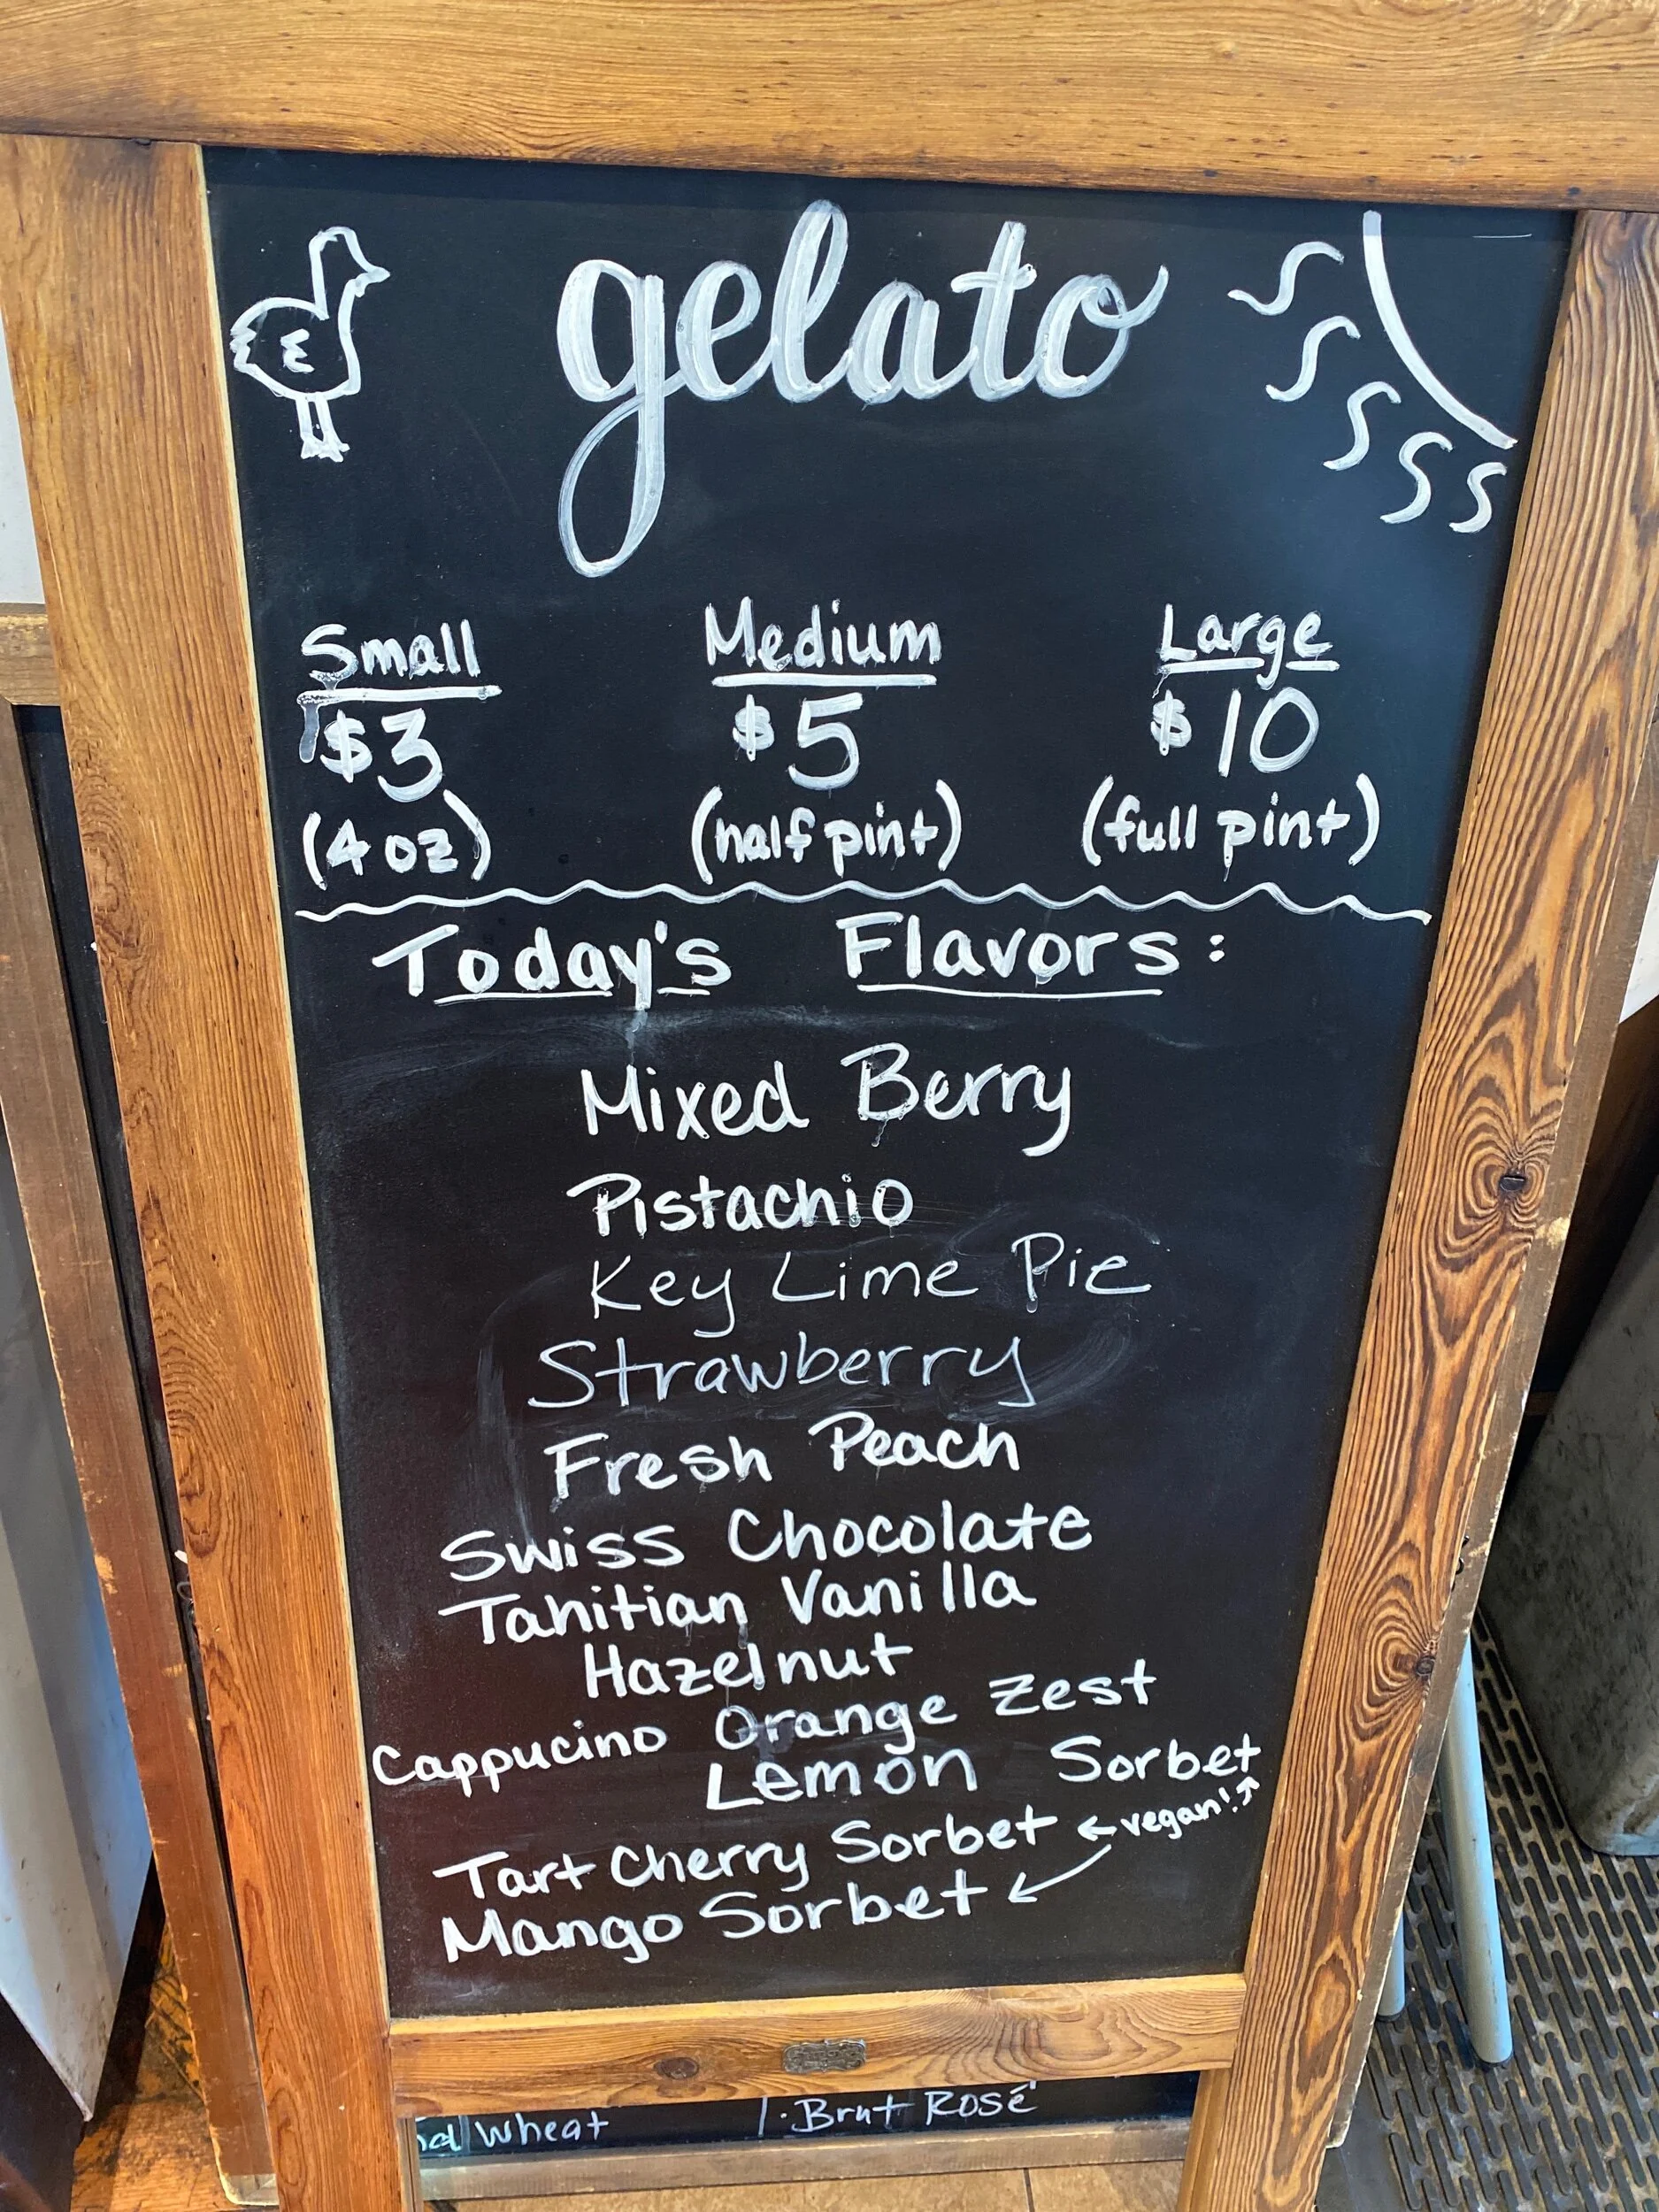 gelato
Small Medium Large
$3 $5 $10
(4 oz) (half pint) (full pint)
Today's Flavors:
Mixed Berry
Pistachio
Key Lime Pie
Strawberry
Fresh Peach
Swiss Chocolate
Tahitian Vanilla
Hazelnut
Cappucino Orange Zest
Lemon Sorbet
Tart Cherry Sorbet ← vegan! ↗
Mango Sorbet ↙
Wheat 1. Brut Rosé